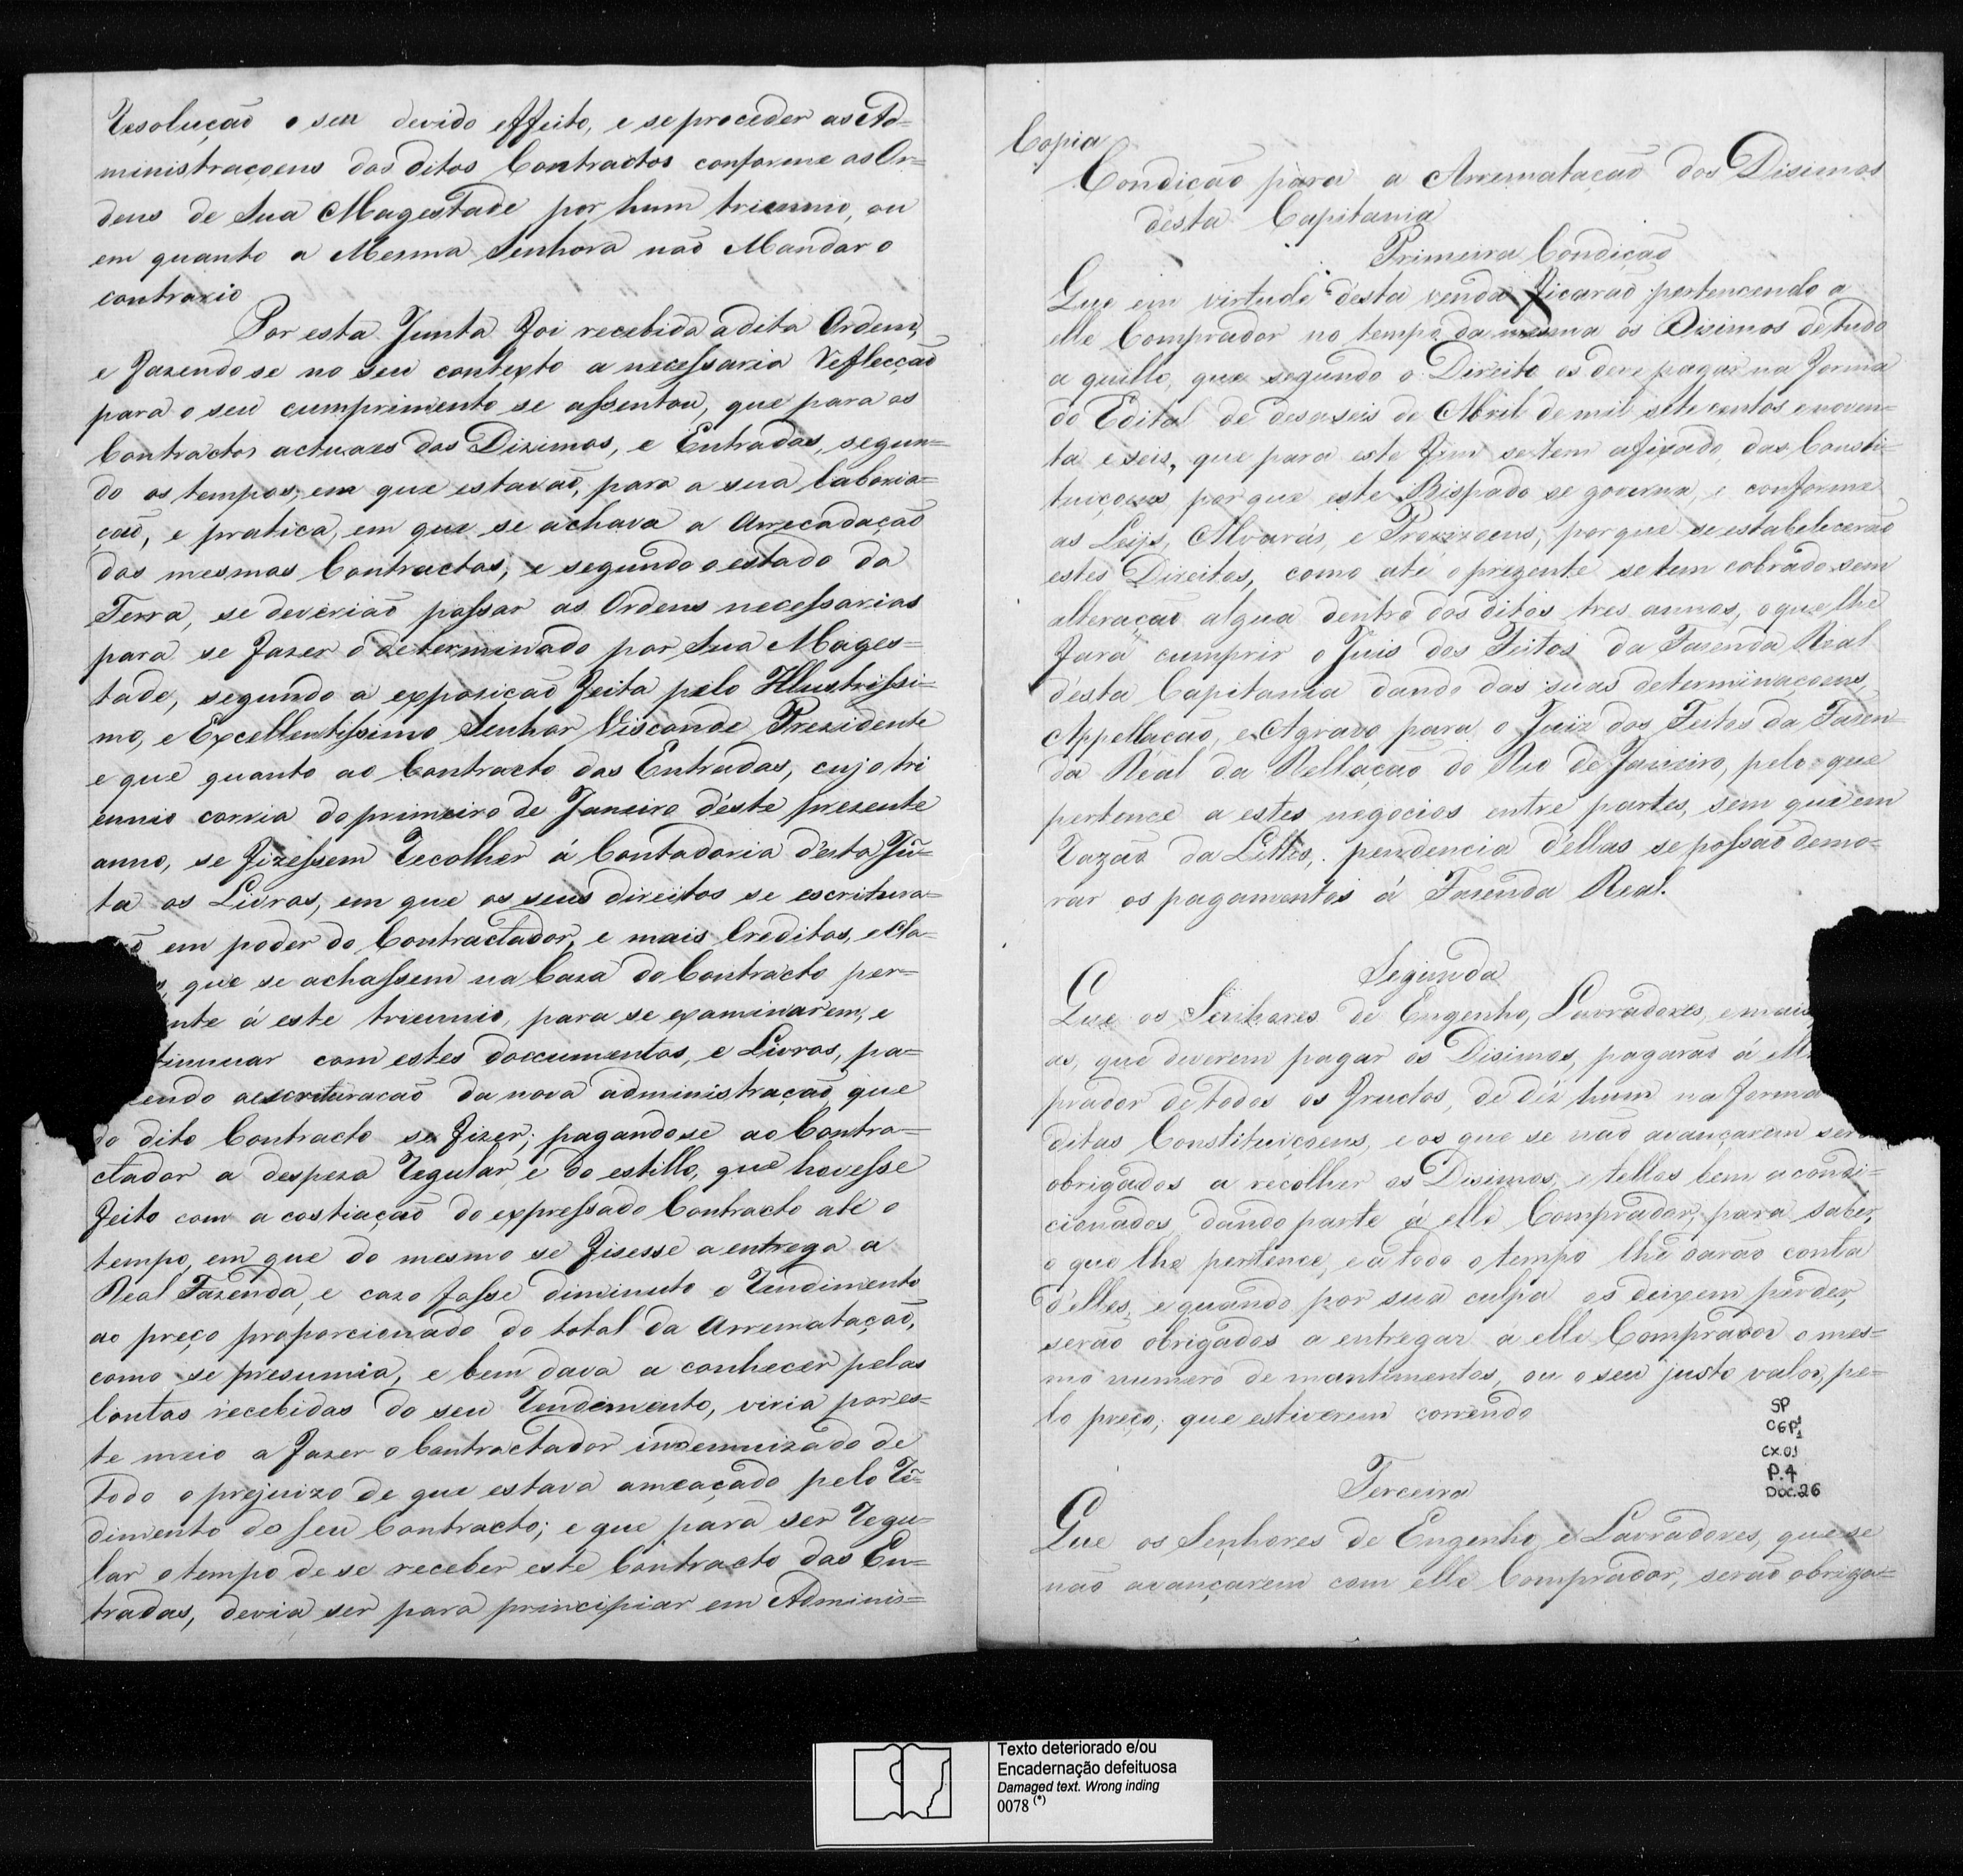 Resolução o seu devido effeito, e se proceder as Ad=
ministraçoens dos ditos Contractos conforme as Or=
dens de Sua Magestade por hum triennio, ou
em quanto a Mesma Senhora não Mandar o
contrario
Por esta Junta foi recebida a dita Ordem,
e fazendo se no seu contexto a necessaria Reflecção
para o seu cumprimento se assentou, que para os
Contractos actuaes dos Dizimos, e Entradas, segun=
do os tempos, em que estavão, para a sua laboria=
ção, e pratica, em que se achava a Arrecadação
dos mesmos Contractos, e segundo o estado da
Terra, se deverião passar as Ordens necessarias
para se fazer o determinado por Sua Mages=
tade, segundo a exposição feita pelo Illustrissi=
mo, e Excellentissimo Senhor Visconde Prezidente
e que quanto ao Contracto das Entradas, cujo tri
ennio corria do primeiro de Janeiro d'este presente
anno, se fizessem Recolher á Contadoria d'esta Jũ=
ta os Livros, em que os seus direitos se escritura=
em poder do Contractador, e mais Creditos, e Cla=
que se achassem na Caza do Contracto per=
nte á este triennio, para se examinarem, e
tinuar com estes documentos, e Livros, pa=
endo a escrituração da nova administração, que
do dito Contracto se fizer; pagando se ao Contra=
ctador a despeza Regular, e do estillo, que houvesse
feito com a costiação do expressado Contracto até o
tempo, em que do mesmo se fisesse a entrega a
Real Fazenda, e cazo fosse diminuto o Rendimento
ao preço proporcionado do total da Arrematação,
como se presumia, e bem dava a conhecer pelas
Contas recebidas do seu Rendimento, viria por es=
te meio a fazer o Contractador indemnizado de
todo o prejuizo de que estava ameaçado pelo Rẽ=
dimento do seu Contracto; e que para ser Regu=
lar o tempo de se receber este Contracto das En=
tradas, devia ser para principiar em Adminis=
Copia
Condição para a Arrematação dos Disimos
désta Capitania
Primeira Condição
Que em virtude d'esta venda ficarão pertencendo a
elle Comprador no tempo da mesma os Disimos de tudo
a quillo, que segundo o Direito os deve pagar na forma
do Edital de desaseis de Abril de mil sete centos e noven=
ta e seis, que para este fim se tem afixado, das Consti=
tuiçoens por que este Bispado se governa, e conforme
as Leis, Alvarás, e Provizoens, por que se estabelecerão
estes Direitos, como até o prezente se tem cobrado sem
alteração algua dentro dos ditos tres annos, o que lhe
fará cumprir o Juis dos Feitos da Fasenda Real
d'esta Capitania dando das suas determinaçoens
Appellação, e Agravo para o Juiz dos Feitos da Fasen=
da Real da Rellação do Rio de Janeiro, pelo que
pertence a estes negocios entre partes, sem que em
Razão da Littis, pendencia d'ellas se possão demo=
rar os pagamentos á Fasenda Real.
Segunda
Que os Senhores de Engenho, Lavradores, e mais
as, que deverem pagar os Disimos, pagarão á elle
prador de todos os fructos, de déz hum na forma
ditas Constituiçoens, e os que se não avançarem ser
obrigados a recolher os Disimos, e tellos bem acondi=
cionados, dando parte á elle Comprador, para saber,
o que lhe pertence, e a todo o tempo lhe darão conta
d'elles, e quando por sua culpa os deixem perder,
serão obrigados a entregar á elle Comprador o mes=
mo numero de mantimentos, ou o seu justo valor, pe=
lo preço, que estiverem correndo
SP
CGP1
1
CX.01
P.4
DOC.26
Terceira
Que os Senhores de Engenho, e Lavradores, que se
não avançarem com elle Comprador, serão obriga=
Texto deteriorado e/ou
Encadernação defeituosa
Damaged text. Wrong inding
0078 (*)